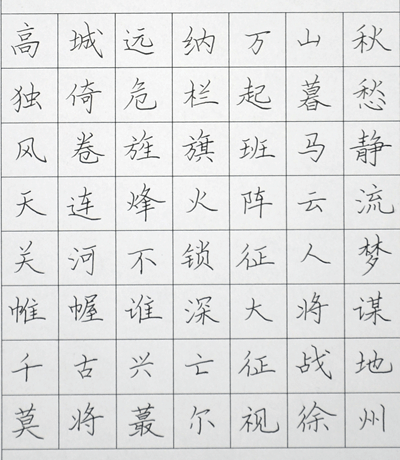 高城远纳万山秋
独倚危栏起暮愁
风卷旌旗班马静
天连烽火阵云流
关河不锁征人梦
帷幄谁深大将谋
千古兴亡征战地
莫将蕞尔视徐州